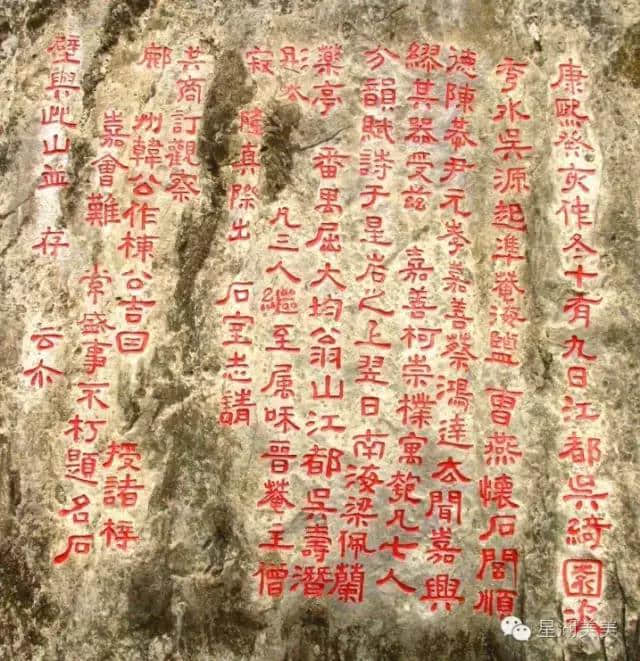 康熙癸亥仲冬十有九日江都吳綺園次
秀水吳源起準菴海鹽曹燕懷石閭順
德陳恭尹元孝嘉善蔡鴻達太聞嘉興
繆其器受茲嘉善柯崇樸寓匏凡七人
分韻賦詩于是岩之上翌日南海梁佩蘭
藥亭番禺屈大均翁山江都吳壽潛
彤本凡三人繼至属咊晉菴主僧
寂隆真際出石室志請
共商訂觀察
鄜州韓公作棟公吉曰授諸梓
嘉會難常盛事不朽題名石
壁與此山並存云尒
星湖美美